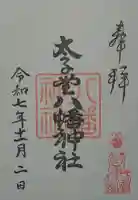 奉拝
太子堂八幡神社
令和七年十一月二日